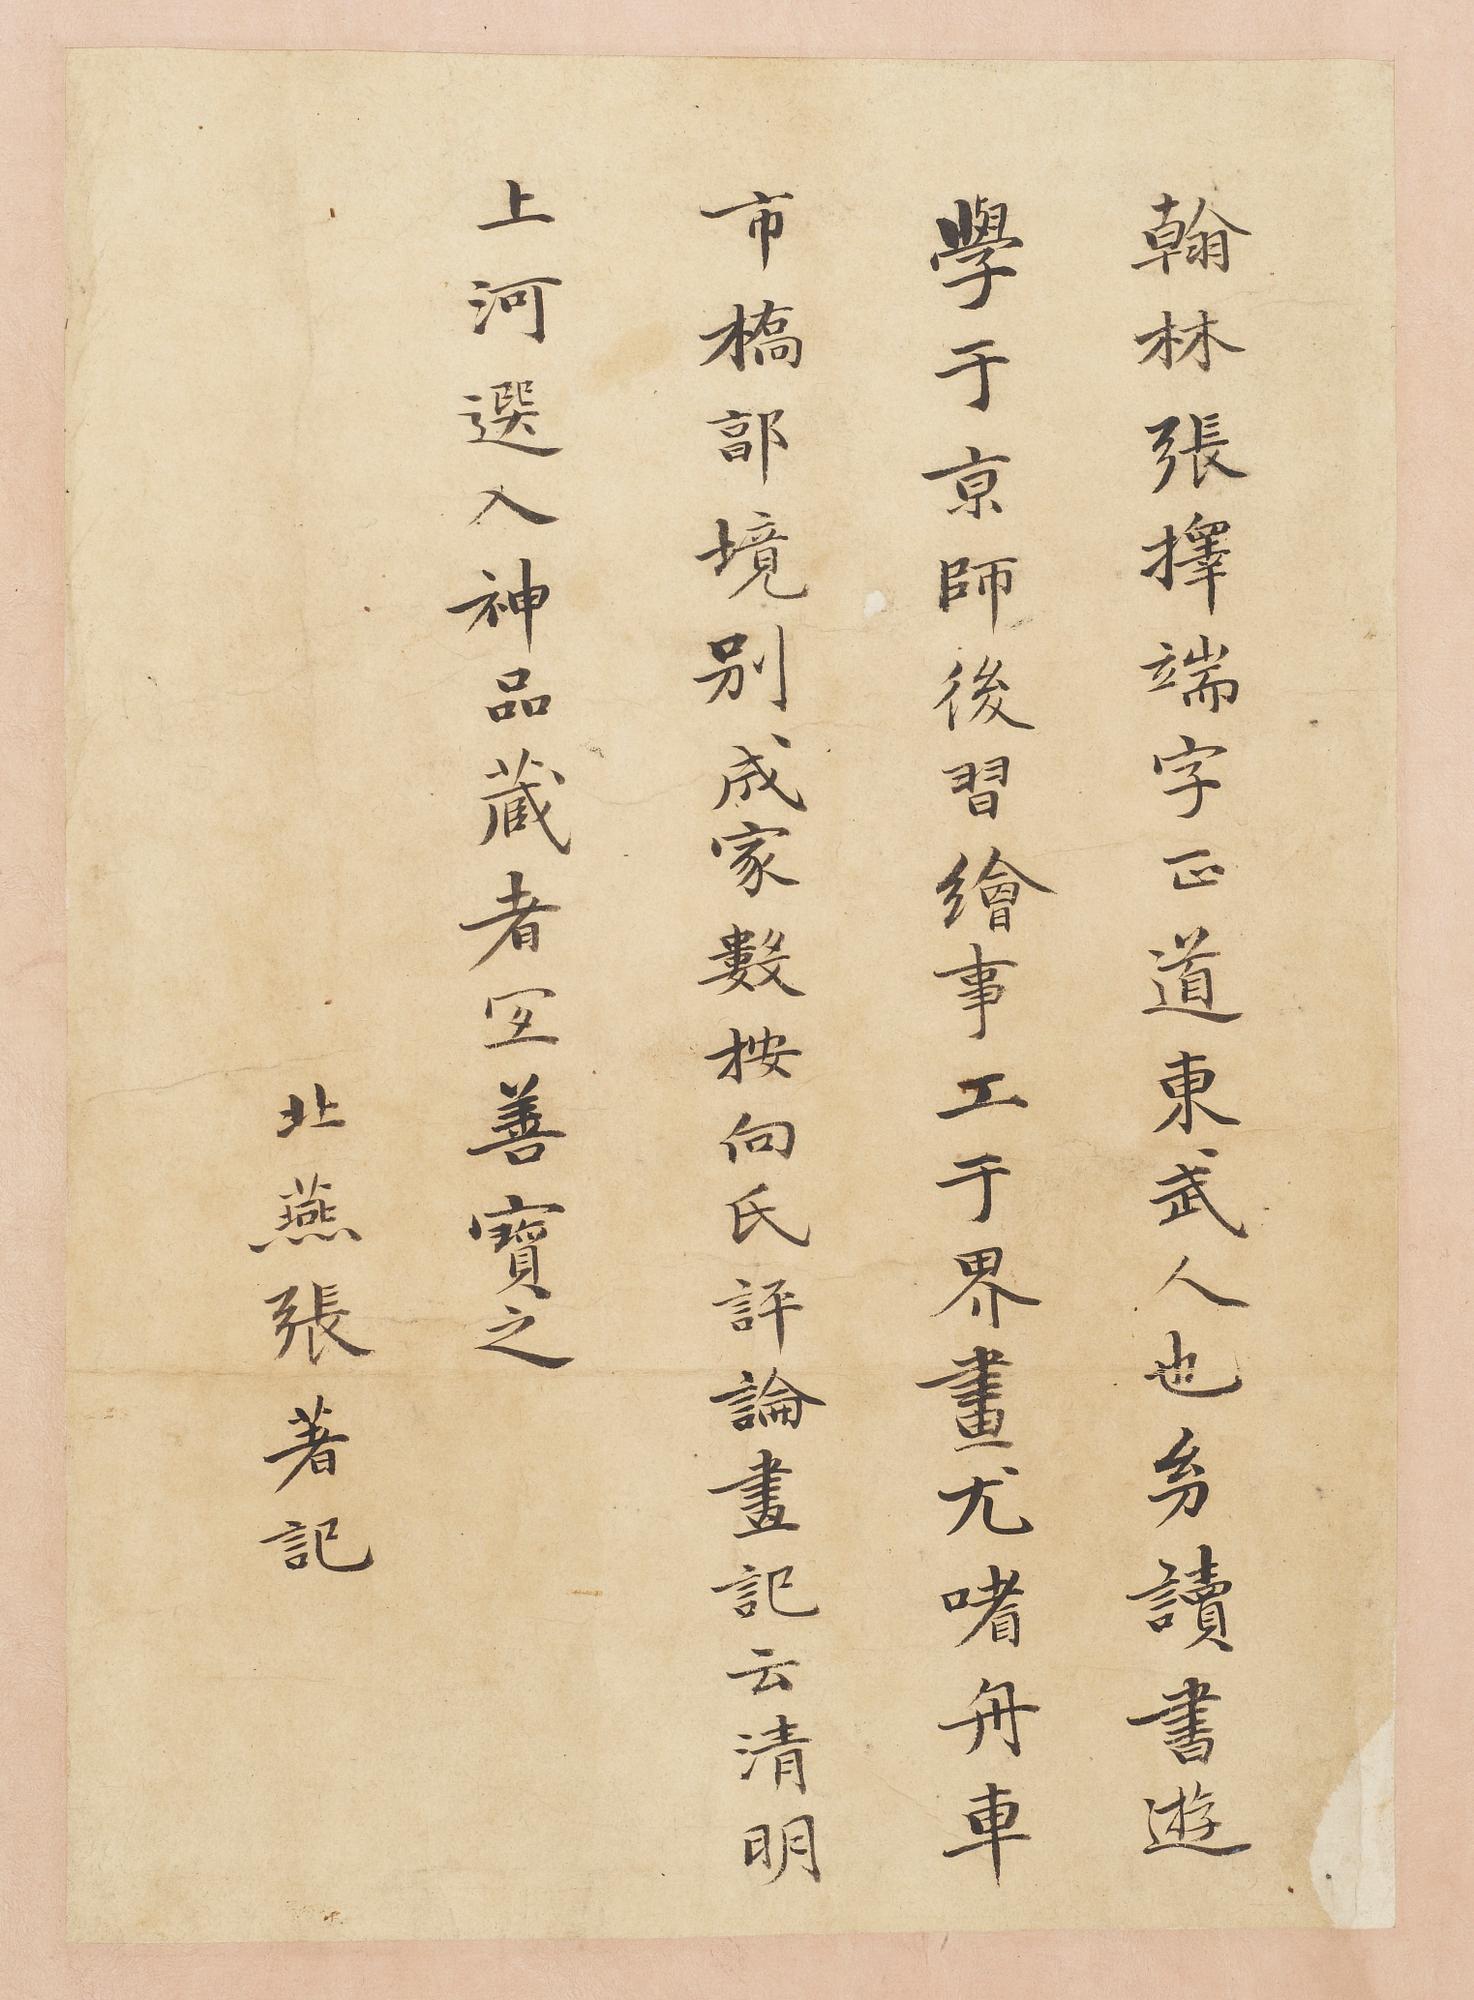 翰林張擇端字正道東武人也㓜讀書遊
學于京師後習繪事工于界畫尤嗜舟車
市橋郭境別成家數按向氏評論畫記云清明
上河選入神品藏者宜善寶之
北燕張著記